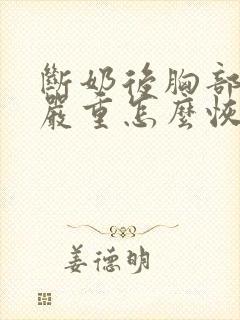 斷奶後胸部
嚴重怎麼恢
姜德明